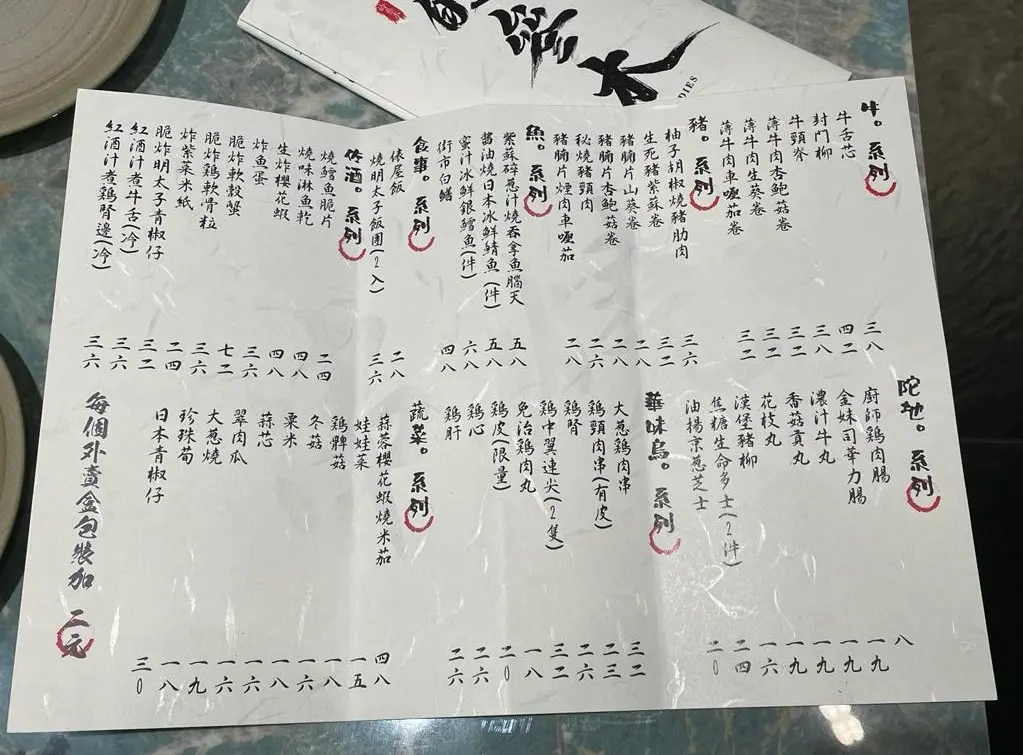 牛。系列
牛舌芯 三八
封門柳 四二
牛頸脊 三八
薄牛肉杏鮑菇卷 三二
薄牛肉生葵卷 三二
薄牛肉車喱茄卷 三二
豬。系列
柚子胡椒燒豬肋肉 三六
生死豬紫蘇卷 三二
豬腩片山葵卷 二八
豬腩片杏鮑菇卷 二八
秘燒豬頸肉 二六
豬腩片煙肉車喱茄 二八
魚。系列
紫蘇碎葱汁燒吞拿魚腦天 五八
醬油燒日本冰鮮鯖魚(件) 五八
蜜汁冰鮮銀鱈魚(件) 六八
街市白鱔 四八
食事。系列
俵屋飯 二八
燒明太子飯團(2入) 三六
佐酒。系列
燒鱈魚脆片 二四
燒味淋魚乾 四八
生炸櫻花蝦 四八
炸魚蛋 三六
脆炸軟殼蟹 七二
脆炸鷄軟骨粒 三六
炸紫菜米紙 二四
脆炸明太子青椒仔 三二
紅酒汁煮牛舌(冷) 三六
紅酒汁煮鷄腎邊(冷) 三六
陀地。系列
廚師鷄肉腸 八
金妹司華力腸 一九
濃汁牛丸 一九
香菇貢丸 一九
花枝丸 一九
漢堡豬柳 一六
焦糖生命多士(2件) 二四
油揚京葱芝士 二0
華味鳥。系列
大葱鷄肉串 三二
鷄頸肉串(有皮) 二三
鷄腎 二六
鷄中翼連尖(2隻) 三二
免治鷄肉丸 一八
鷄皮(限量) 二0
鷄心 二六
鷄肝 二六
蔬菜。系列
蒜蓉櫻花蝦燒米茄 四八
娃娃菜 一五
鷄髀菇 一八
冬菇 一六
粟米 一八
蒜芯 一六
翠肉瓜 一六
大葱燒 一九
珍珠筍 一八
日本青椒仔 三0
每個外賣盒包裝加 二元